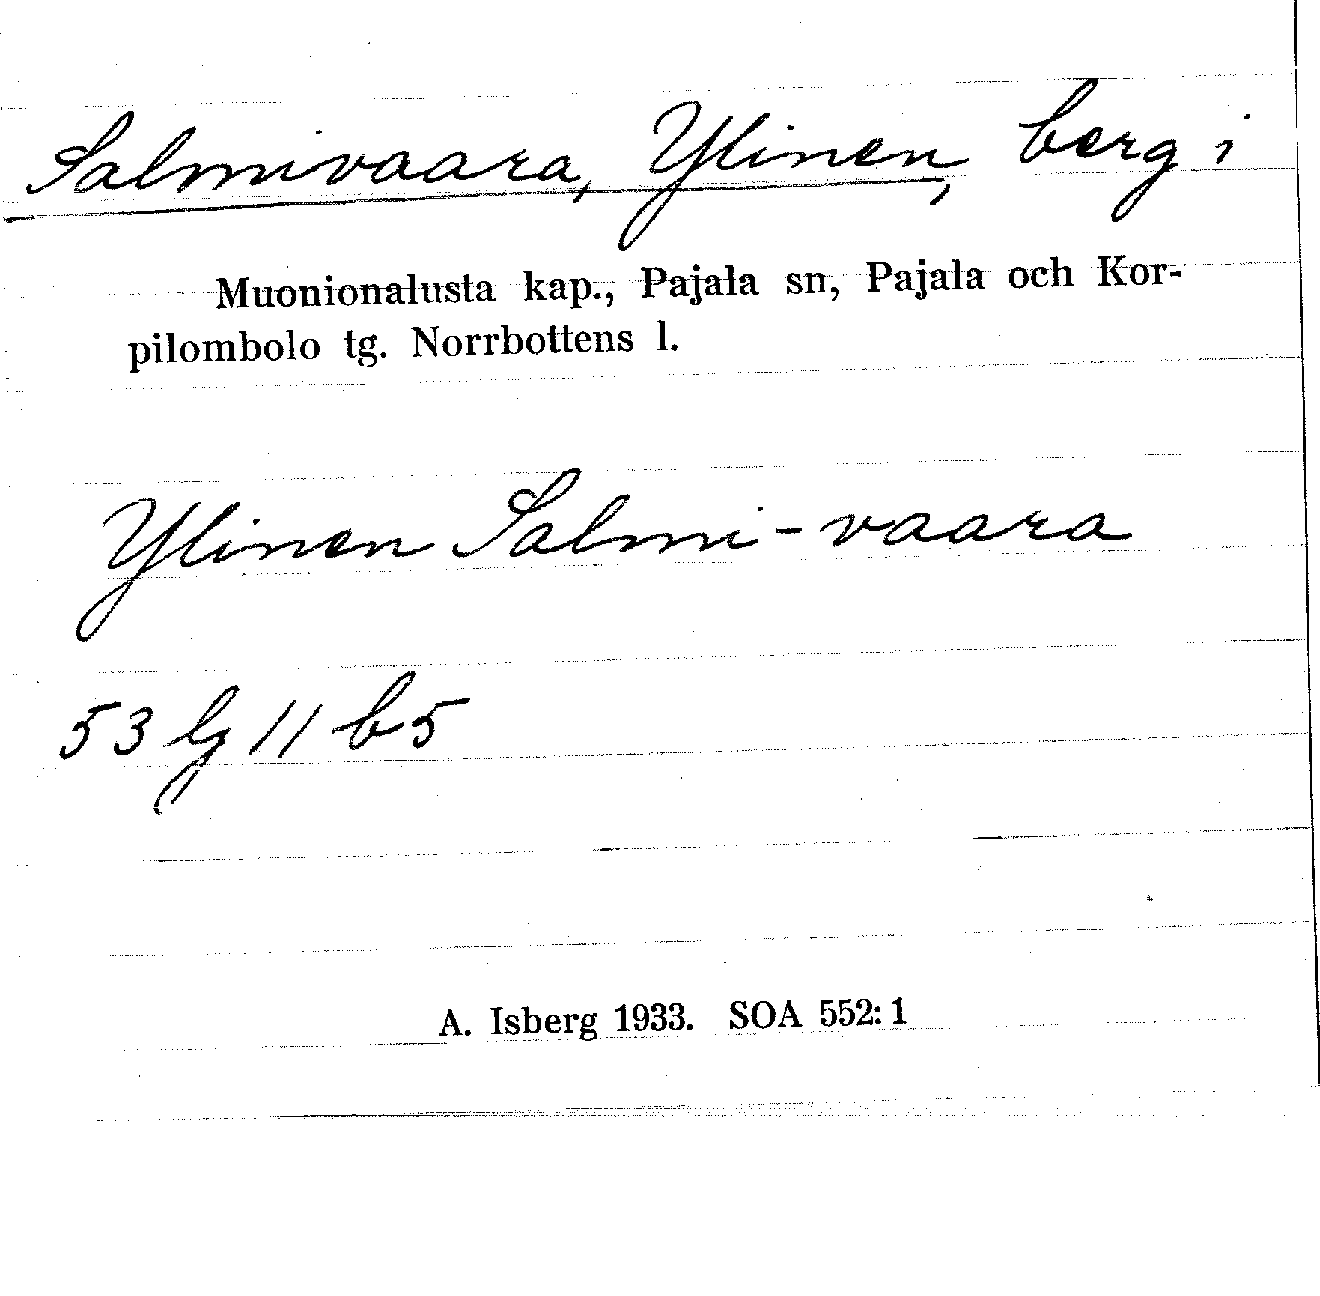 Salmivaara, Ylinen, berg i
Muonionalusta kap., Pajala sn, Pajala och Kor-
pilombolo tg. Norrbottens l.
Ylinen Salmi-vaara
53 lg 11 b5
A. Isberg 1933. SOA 552:1